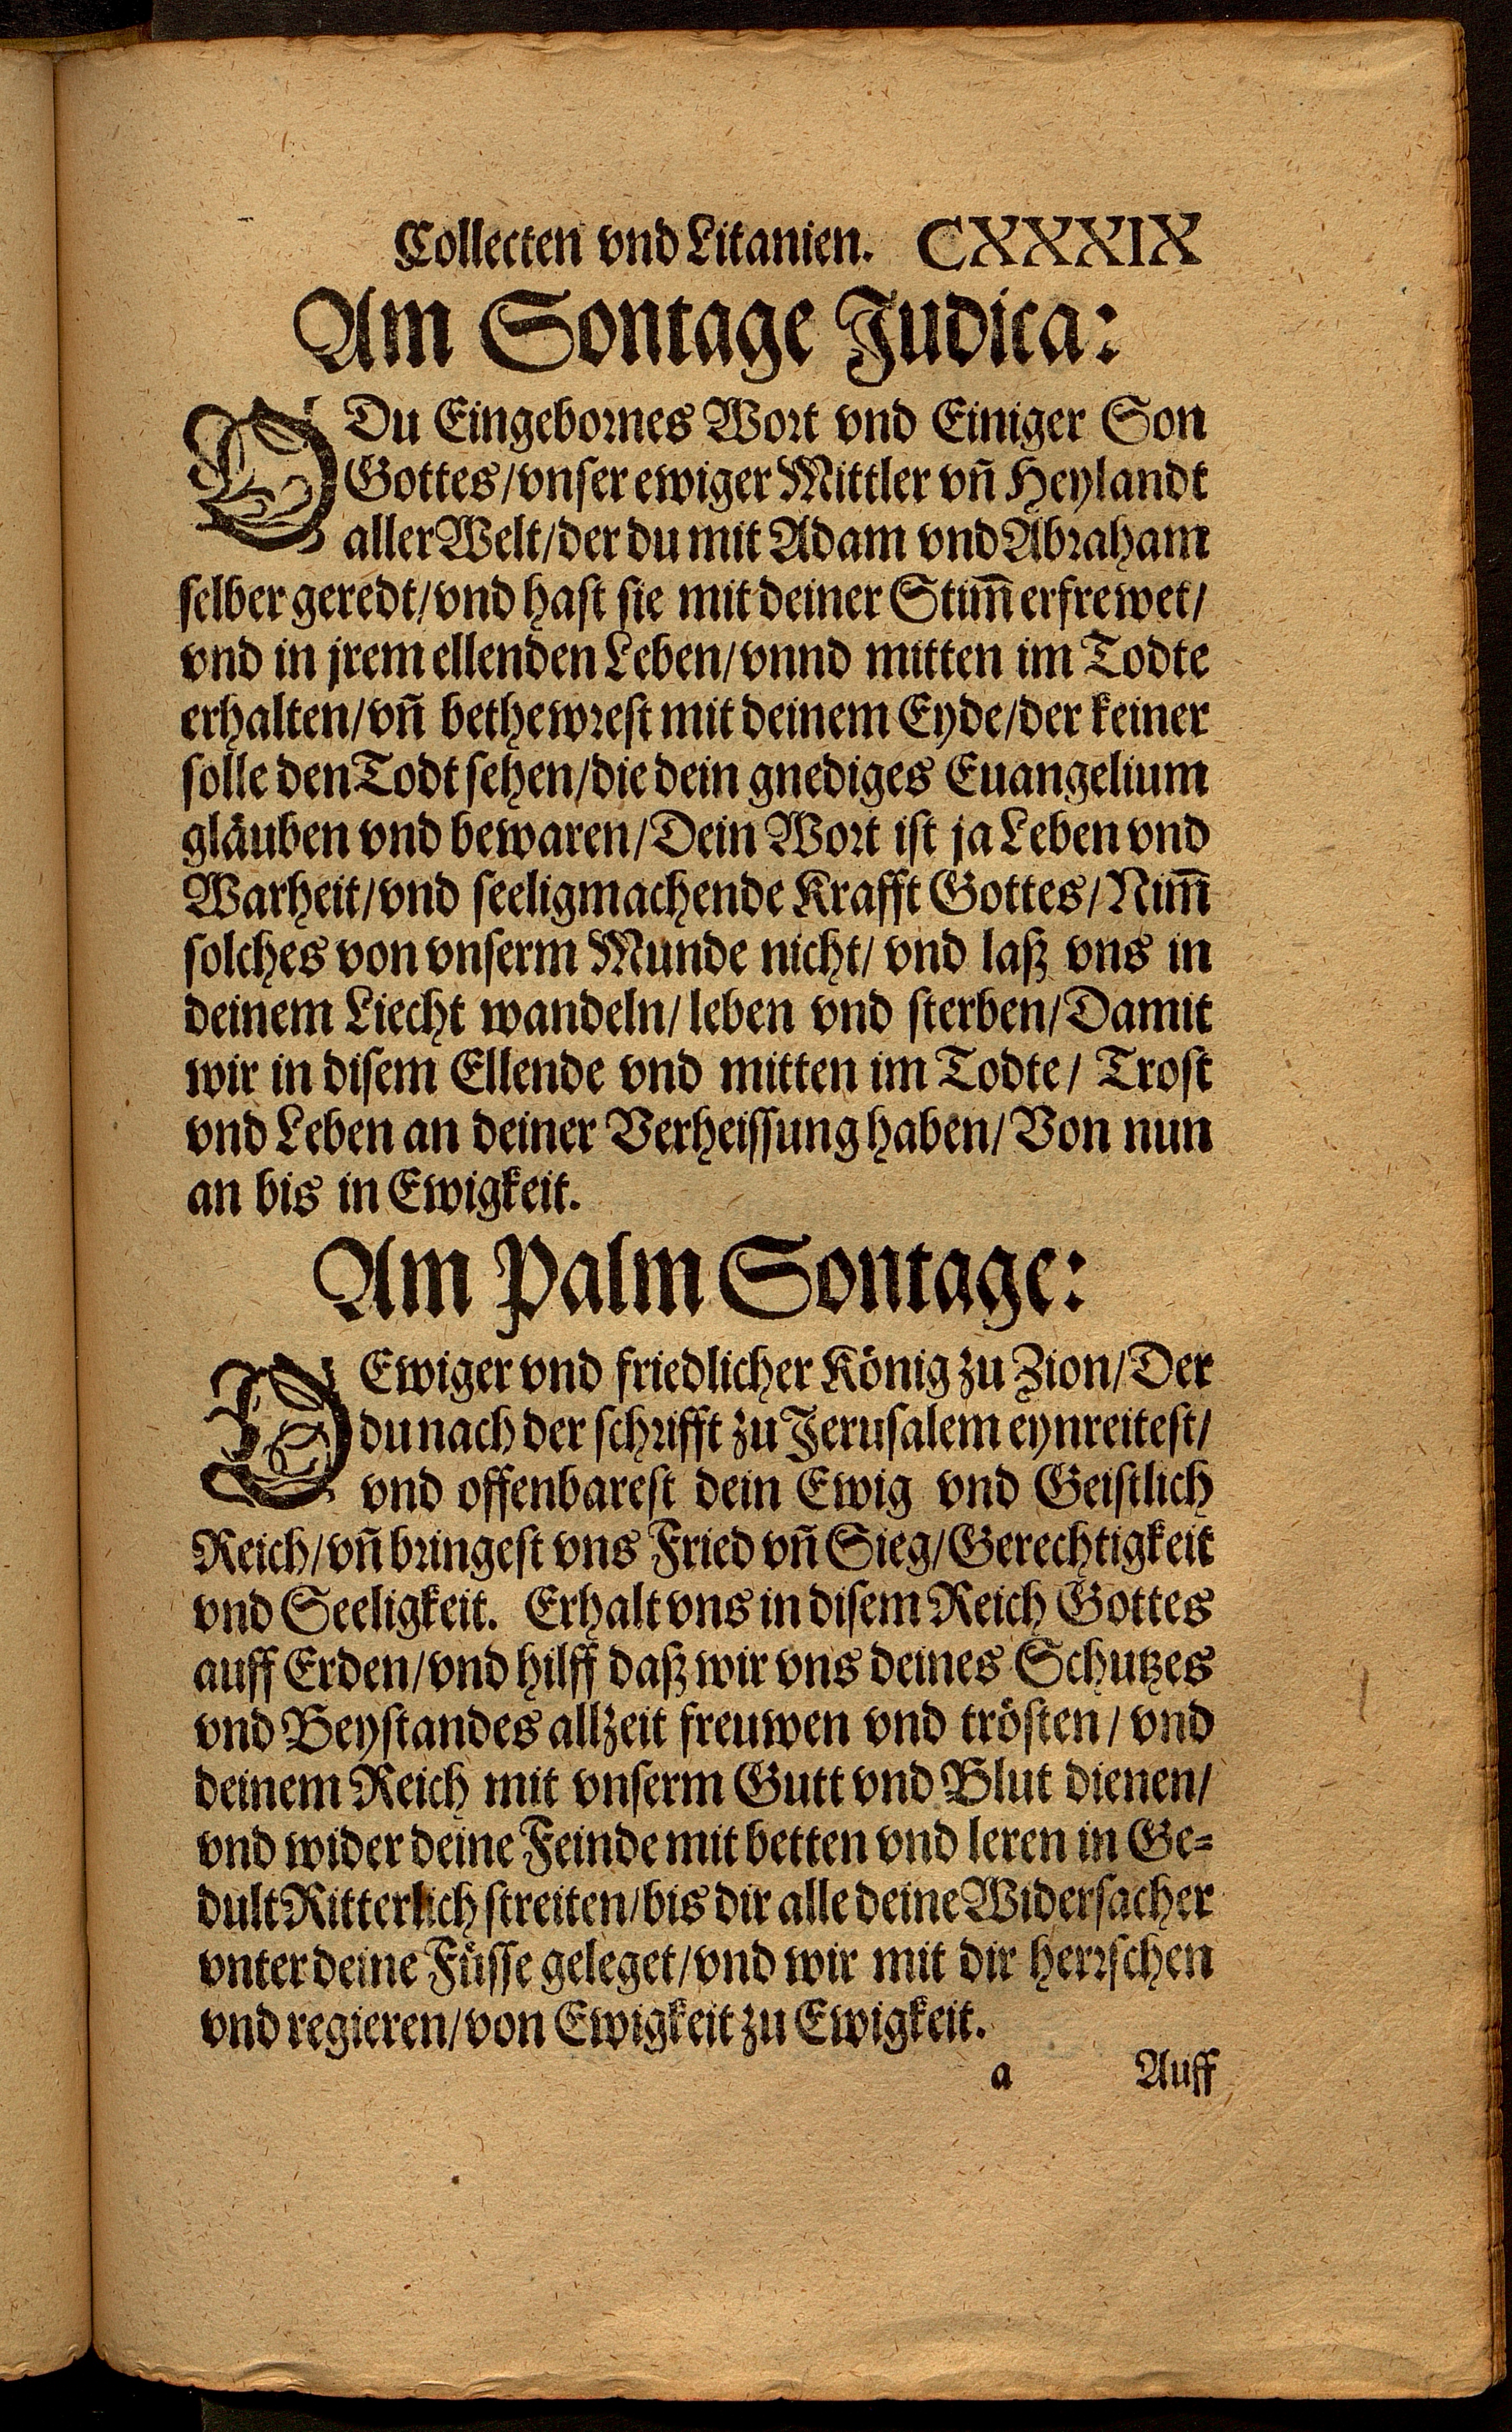 Collecten vnd Litanien. CXXXIX
Am Sontage Judica:
O Du Eingebornes Wort vnd Einiger Son
Gottes/vnser ewiger Mittler vñ Heylandt
aller Welt/der du mit Adam vnd Abraham
selber geredt/vnd hast sie mit deiner Stim̃ erfrewet/
vnd in jrem ellenden Leben/vnnd mitten im Todte
erhalten/vñ bethewrest mit deinem Eyde/der keiner
solle den Todt sehen/die dein gnediges Euangelium
gläuben vnd bewaren/Dein Wort ist ja Leben vnd
Warheit/vnd seeligmachende Krafft Gottes/Nim̃
solches von vnserm Munde nicht/ vnd laß vns in
deinem Liecht wandeln/ leben vnd sterben/Damit
wir in disem Ellende vnd mitten im Todte/ Trost
vnd Leben an deiner Verheissung haben/Von nun
an bis in Ewigkeit.
Am Palm Sontage:
O Ewiger vnd friedlicher König zu Zion/Der
du nach der schrifft zu Jerusalem eynreitest/
vnd offenbarest dein Ewig vnd Geistlich
Reich/vñ bringest vns Fried vñ Sieg/Gerechtigkeit
vnd Seeligkeit. Erhalt vns in disem Reich Gottes
auff Erden/vnd hilff daß wir vns deines Schutzes
vnd Beystandes allzeit freuwen vnd trösten/ vnd
deinem Reich mit vnserm Gutt vnd Blut dienen/
vnd wider deine Feinde mit betten vnd leren in Ge⸗
dult Ritterlich streiten/bis dir alle deine Widersacher
vnter deine Füsse geleget/vnd wir mit dir herrschen
vnd regieren/von Ewigkeit zu Ewigkeit.
a Auff